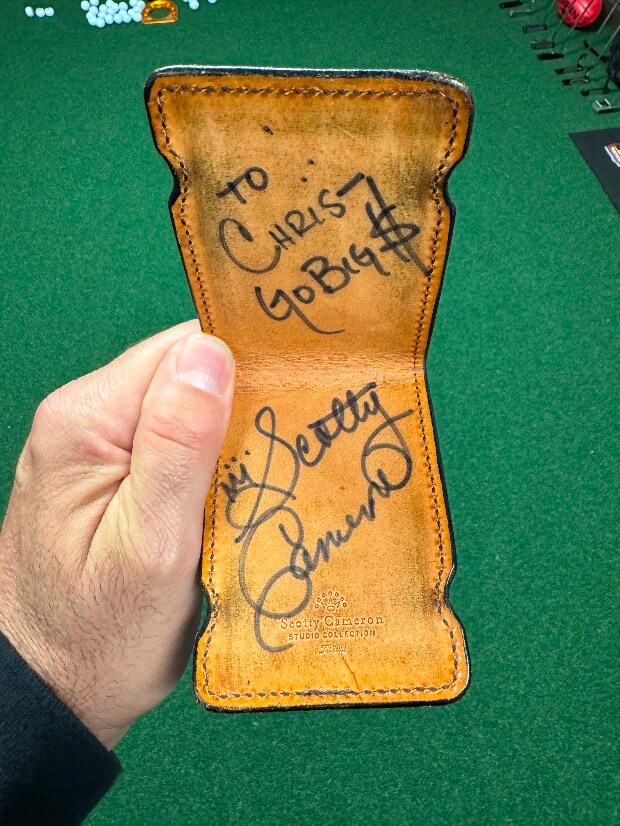 TO
CHRIS-
GO BIG $
Scotty
Cameron
Scotty Cameron
STUDIO COLLECTION